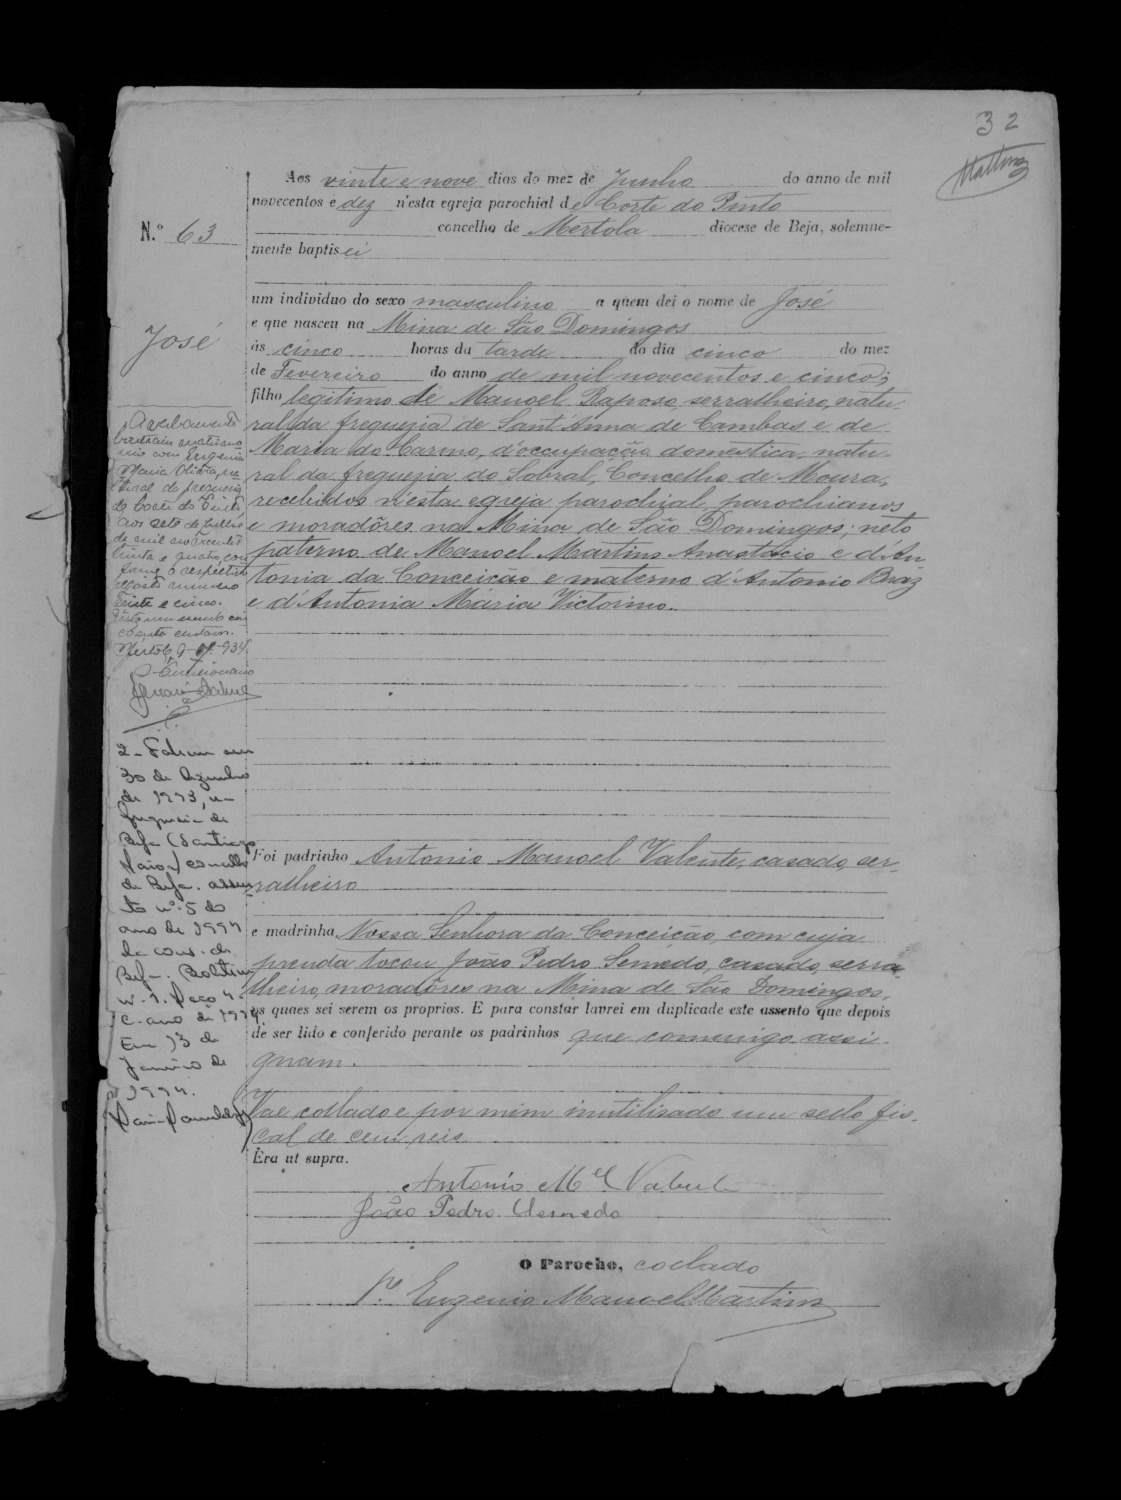 32
Martins
Aos vinte e nove dias do mez de Junho do anno de mil
novecentos e dez n'esta egreja parochial de Corte do Pinto
concelho de Mertola diocese de Beja, solemne-
mente baptisei
N.º 63
José
um individuo do sexo masculino a quem dei o nome de José
e que nasceu na Mina de São Domingos
ás cinco horas da tarde do dia cinco do mez
de Fevereiro do anno de mil novecentos e cinco;
filho legitimo de Manoel Raposo, serralheiro, natu-
ral da freguezia de Sant'Anna de Cambas e de
Maria do Carmo, d'occupação domestica, natu-
ral da freguezia do Sobral, Concelho de Moura,
recebidos n'esta egreja parochial, parochianos
e moradôres na Mina de São Domingos; neto
paterno de Manoel Martins Anastacio e d'An-
tonia da Conceição e materno d'Antonio Braz
e d'Antonia Maria Victorino.
Foi padrinho Antonio Manoel Valente, casado, ser-
ralheiro
e madrinha Nossa Senhora da Conceição, com cuja
prenda tocou João Pedro Semedo, casado, serra-
lheiro, moradôres na Mina de São Domingos,
os quaes sei serem os proprios. E para constar lavrei em duplicado este assento que depois
de ser lido e conferido perante os padrinhos que comemigo assi-
gnam.
Vae collado e por mim inutilisado um sello fis-
cal de cem reis
Era ut supra.
Antonio Mel Valente
João Pedro Semedo
O Parocho, collado
Pe. Eugenio Manoel Martins
Averbamento
nio com Eugenia
Maria
tural da freguezia
de Corte do Pinto
aos sete de Julho
de mil novecentos
trinta e quatro, con
forme o respectivo
numero
trinta e cinco.
Mertola, 9-934
O
2- Faleceu em
30 de Dezembro
de 1993, na
freguesia de
Beja (Santiago
Maior) concelho
de Beja. assen
to nº 5 do
ano de 1994
da cons. de
Beja. Boletim
nº 1. Maço nº
C. ano de 1994.
Em 13 de
Janeiro de
1994.